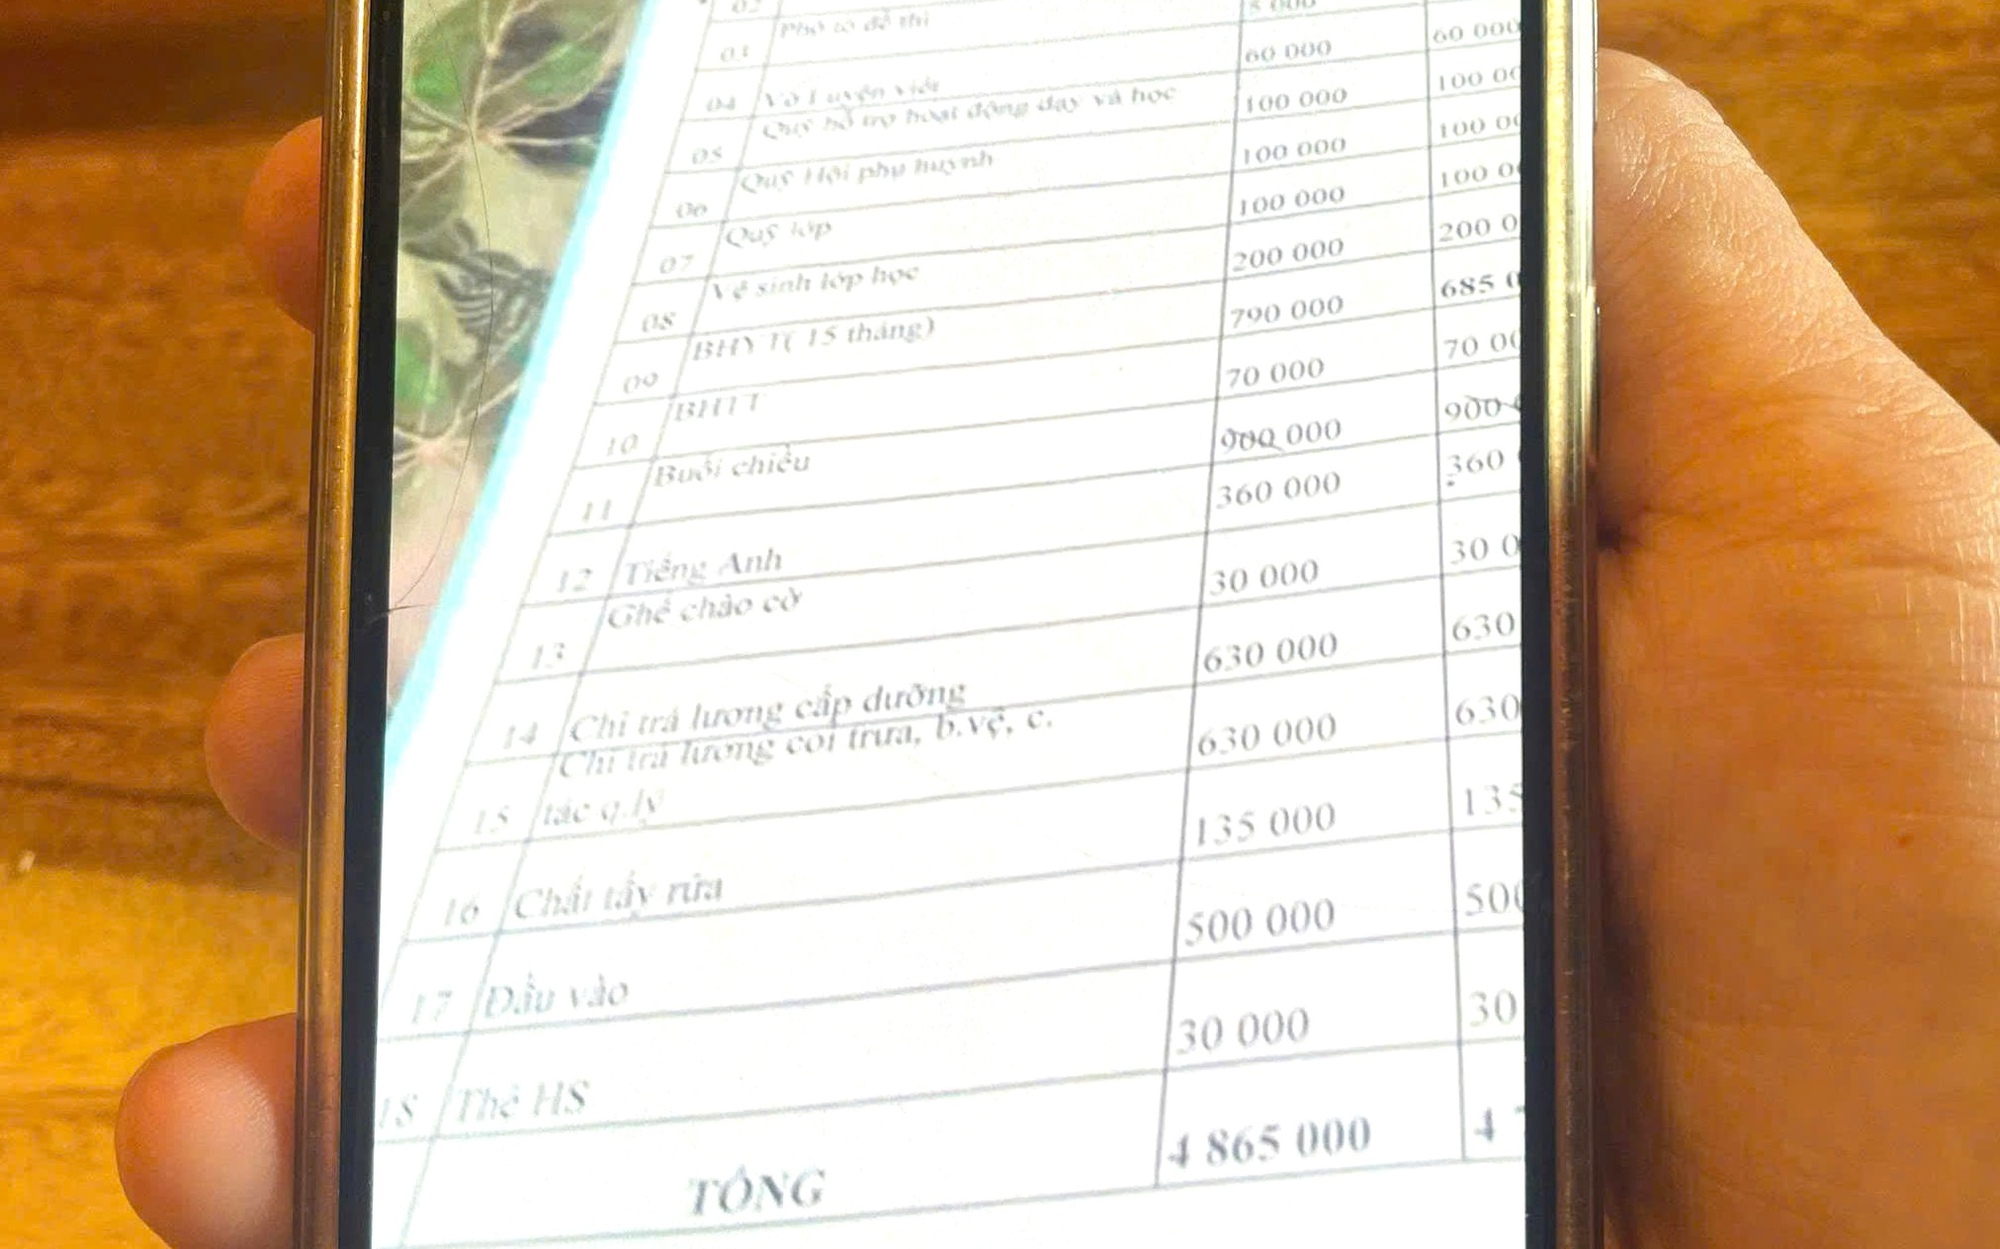 Phô tô đề thi
03
5 000
04 Vở Luyện viết 60 000 60 000
Quỹ hỗ trợ hoạt động dạy và học
05 100 000 100 00
Quỹ Hội phụ huynh
06 100 000 100 00
Quỹ lớp
07 100 000 100 00
Vệ sinh lớp học
08 200 000 200 0
BHYT( 15 tháng)
09 790 000 685 0
BHTT
10 70 000 70 00
Buổi chiều
11 900 000 900
12 Tiếng Anh 360 000 360
Ghế chào cờ
13 30 000 30 0
14 Chi trả lương cấp dưỡng 630 000 630
Chi trả lương coi trưa, b.vệ, c.
15 tác q.lý 630 000 630
16 Chất tẩy rửa 135 000 135
17 Đầu vào 500 000 500
18 Thẻ HS 30 000 30
TỔNG 4 865 000 4